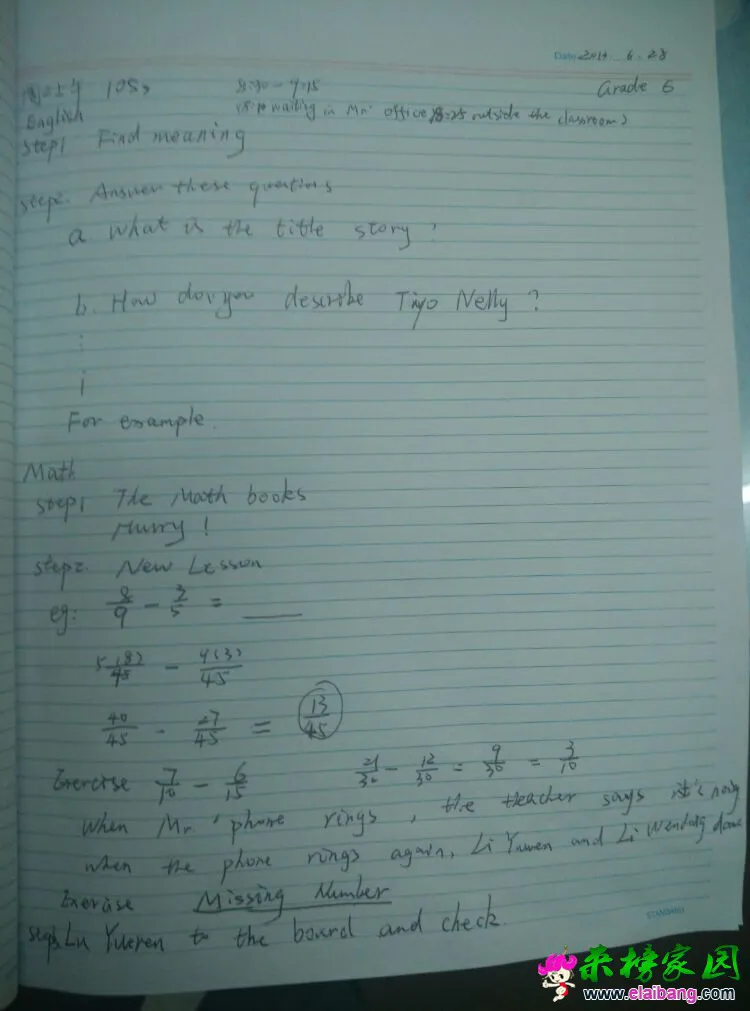 Date 2014. 6. 23
8:30 - 9:15 Grade 6
English (8:10 waiting in Mr. office, 8:25 outside the classroom)
Step1 Find meaning
step2. Answer these questions
a. What is the title story?
b. How do you describe Tiyo Nelly?
:
i
For example.
Math
step1 The Math books
Hurry!
step2. New Lesson
eg: 8/9 - 3/5 = ____
5(8)/45 - 9(3)/45
40/45 - 27/45 = 13/45
Exercise 7/10 - 6/15 21/30 - 12/30 = 9/30 = 3/10
When Mr. ' phone rings, the teacher says it's noisy
when the phone rings again, Li Yuwen and Li Wendong dance
Exercise Missing Number
step3. Lu Yueren to the board and check.
STANDARD
来榜家园
www.elaibang.com